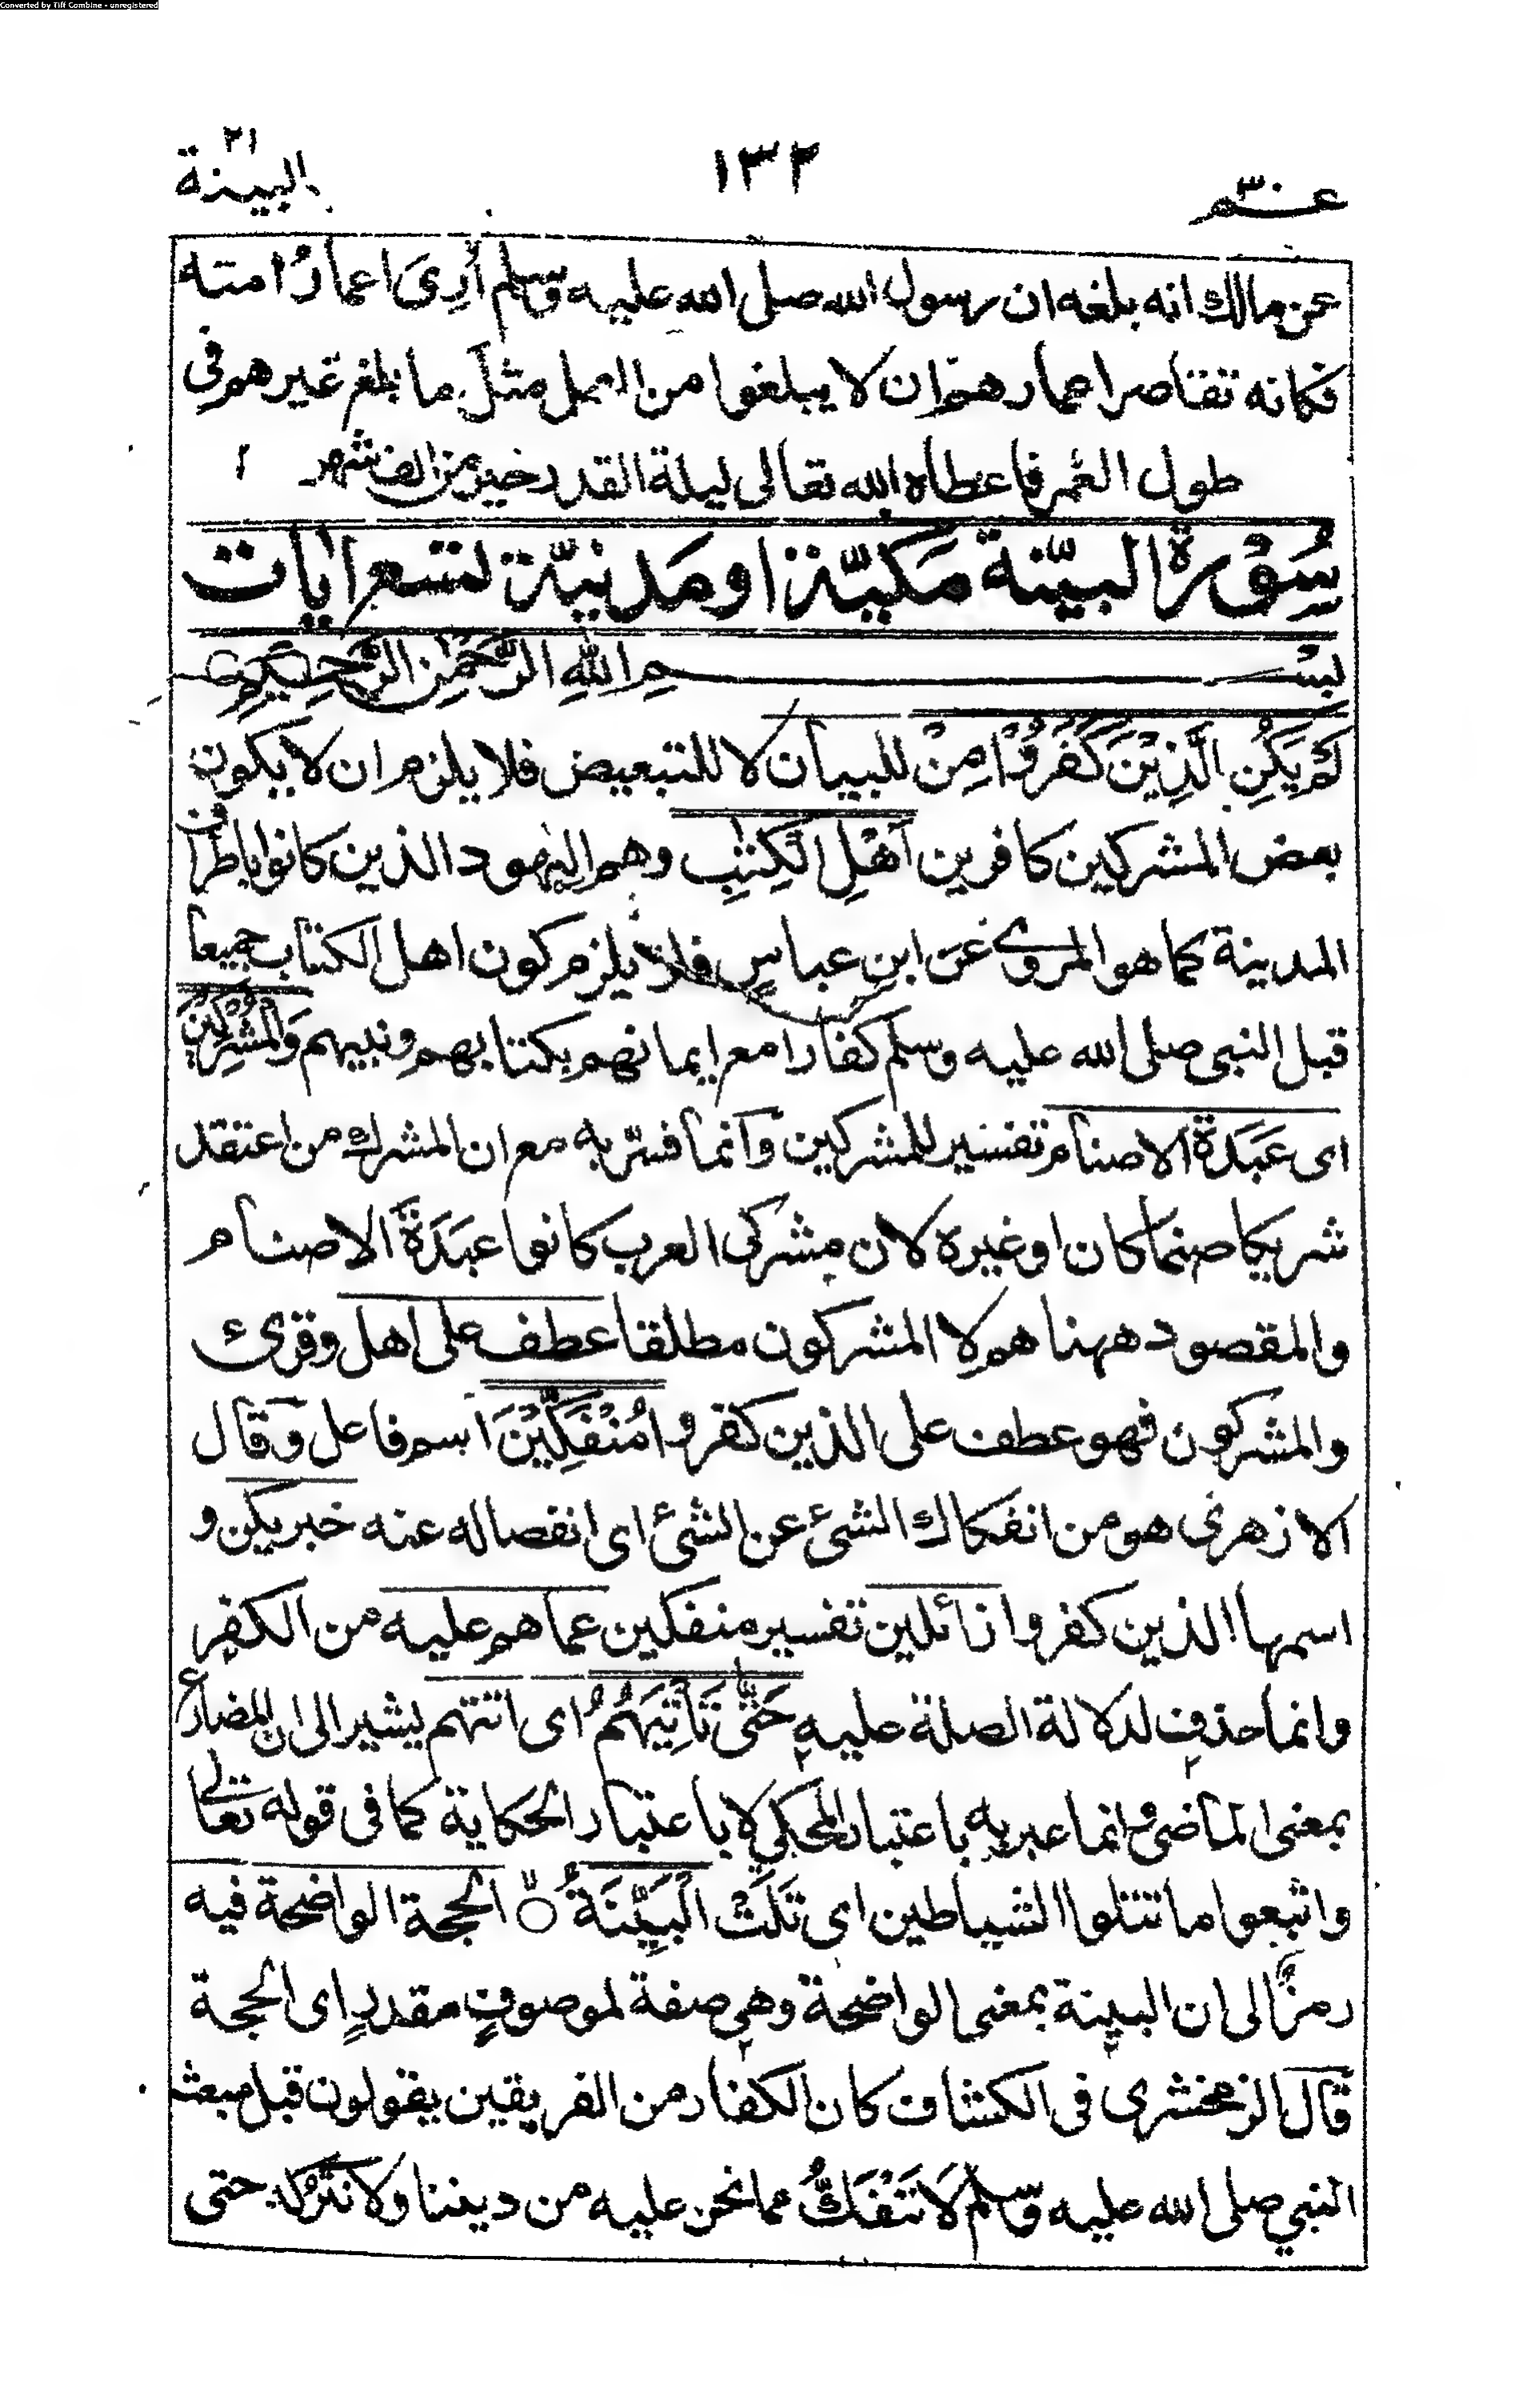 Converted by Tiff Combine - unregistered
عم ٣٠
١٣٢
البينة
٢١
عن مالك انه بلغه ان رسول الله صلى الله عليه وسلم أُرِىَ اعمارُ امته
فكانه تقاصر اعمارهم ان لا يبلغوا من العمل مثل ما بلغ غيرهم فى
طول العُمر فاعطاه الله تعالى ليلة القدر خير من الف شهر
سُوْرة البيّنة مَكيّة او مَدنيّة تسع اٰيات
بِسْمِ اللهِ الرَّحْمٰنِ الرَّحِيْمِ
لَمْ يَكُنِ الَّذِيْنَ كَفَرُوْا مِنْ للبيان لا للتبعيض فلا يلزم ان لا يكون
بعض المشركين كافرين اَهْلِ الْكِتٰبِ وهم اليهود الذين كانوا باطراف
المدينة كما هو المروى عَن ابن عباس فلا يلزم كون اهل الكتاب جميعا
قبل النبى صلى الله عليه وسلم كفارا مع ايمانهم بكتابهم ونبيهم وَالْمُشْرِكِيْنَ
اى عَبَدَة الاصنام تفسير للمشركين وانما فسّر به مع ان المشرك من اعتقد
شريكا صنما كان او غيره لان مشركى العرب كانوا عبَدَة الاصنام
والمقصود ههنا هم لا المشركون مطلقا عطف على اهل وقرئ
والمشركون فهو عطف على الذين كفروا مُنْفَكِّيْنَ اسم فاعل وقال
الازهرى هو من انفكاك الشئ عن الشئ اى انفصاله عنه خبر يكن و
اسمها الذين كفروا زائلين تفسير منفكين عما هم عليه من الكفر
وانما حذف لدلالة الصلة عليه حَتّٰى تَأْتِيَهُمُ اى اتتهم يشير الى ان المضارع
بمعنى الماضى وانما عبر به باعتبار المحكى لا باعتبار الحكاية كما فى قوله تعالى
واتبعوا ما تتلوا الشياطين اى تَلَتْ الْبَيِّنَةُ الحجة الواضحة فيه
رمزٌ الى ان البينة بمعنى الواضحة وهى صفة لموصوفٍ مقدرٍ اى الحجة
قال الزمخشرى فى الكشاف كان الكفار من الفريقين يقولون قبل مبعث
النبي صلى الله عليه وسلم لَا نَنْفَكُّ مما نحن عليه من ديننا ولا نترُكه حتى